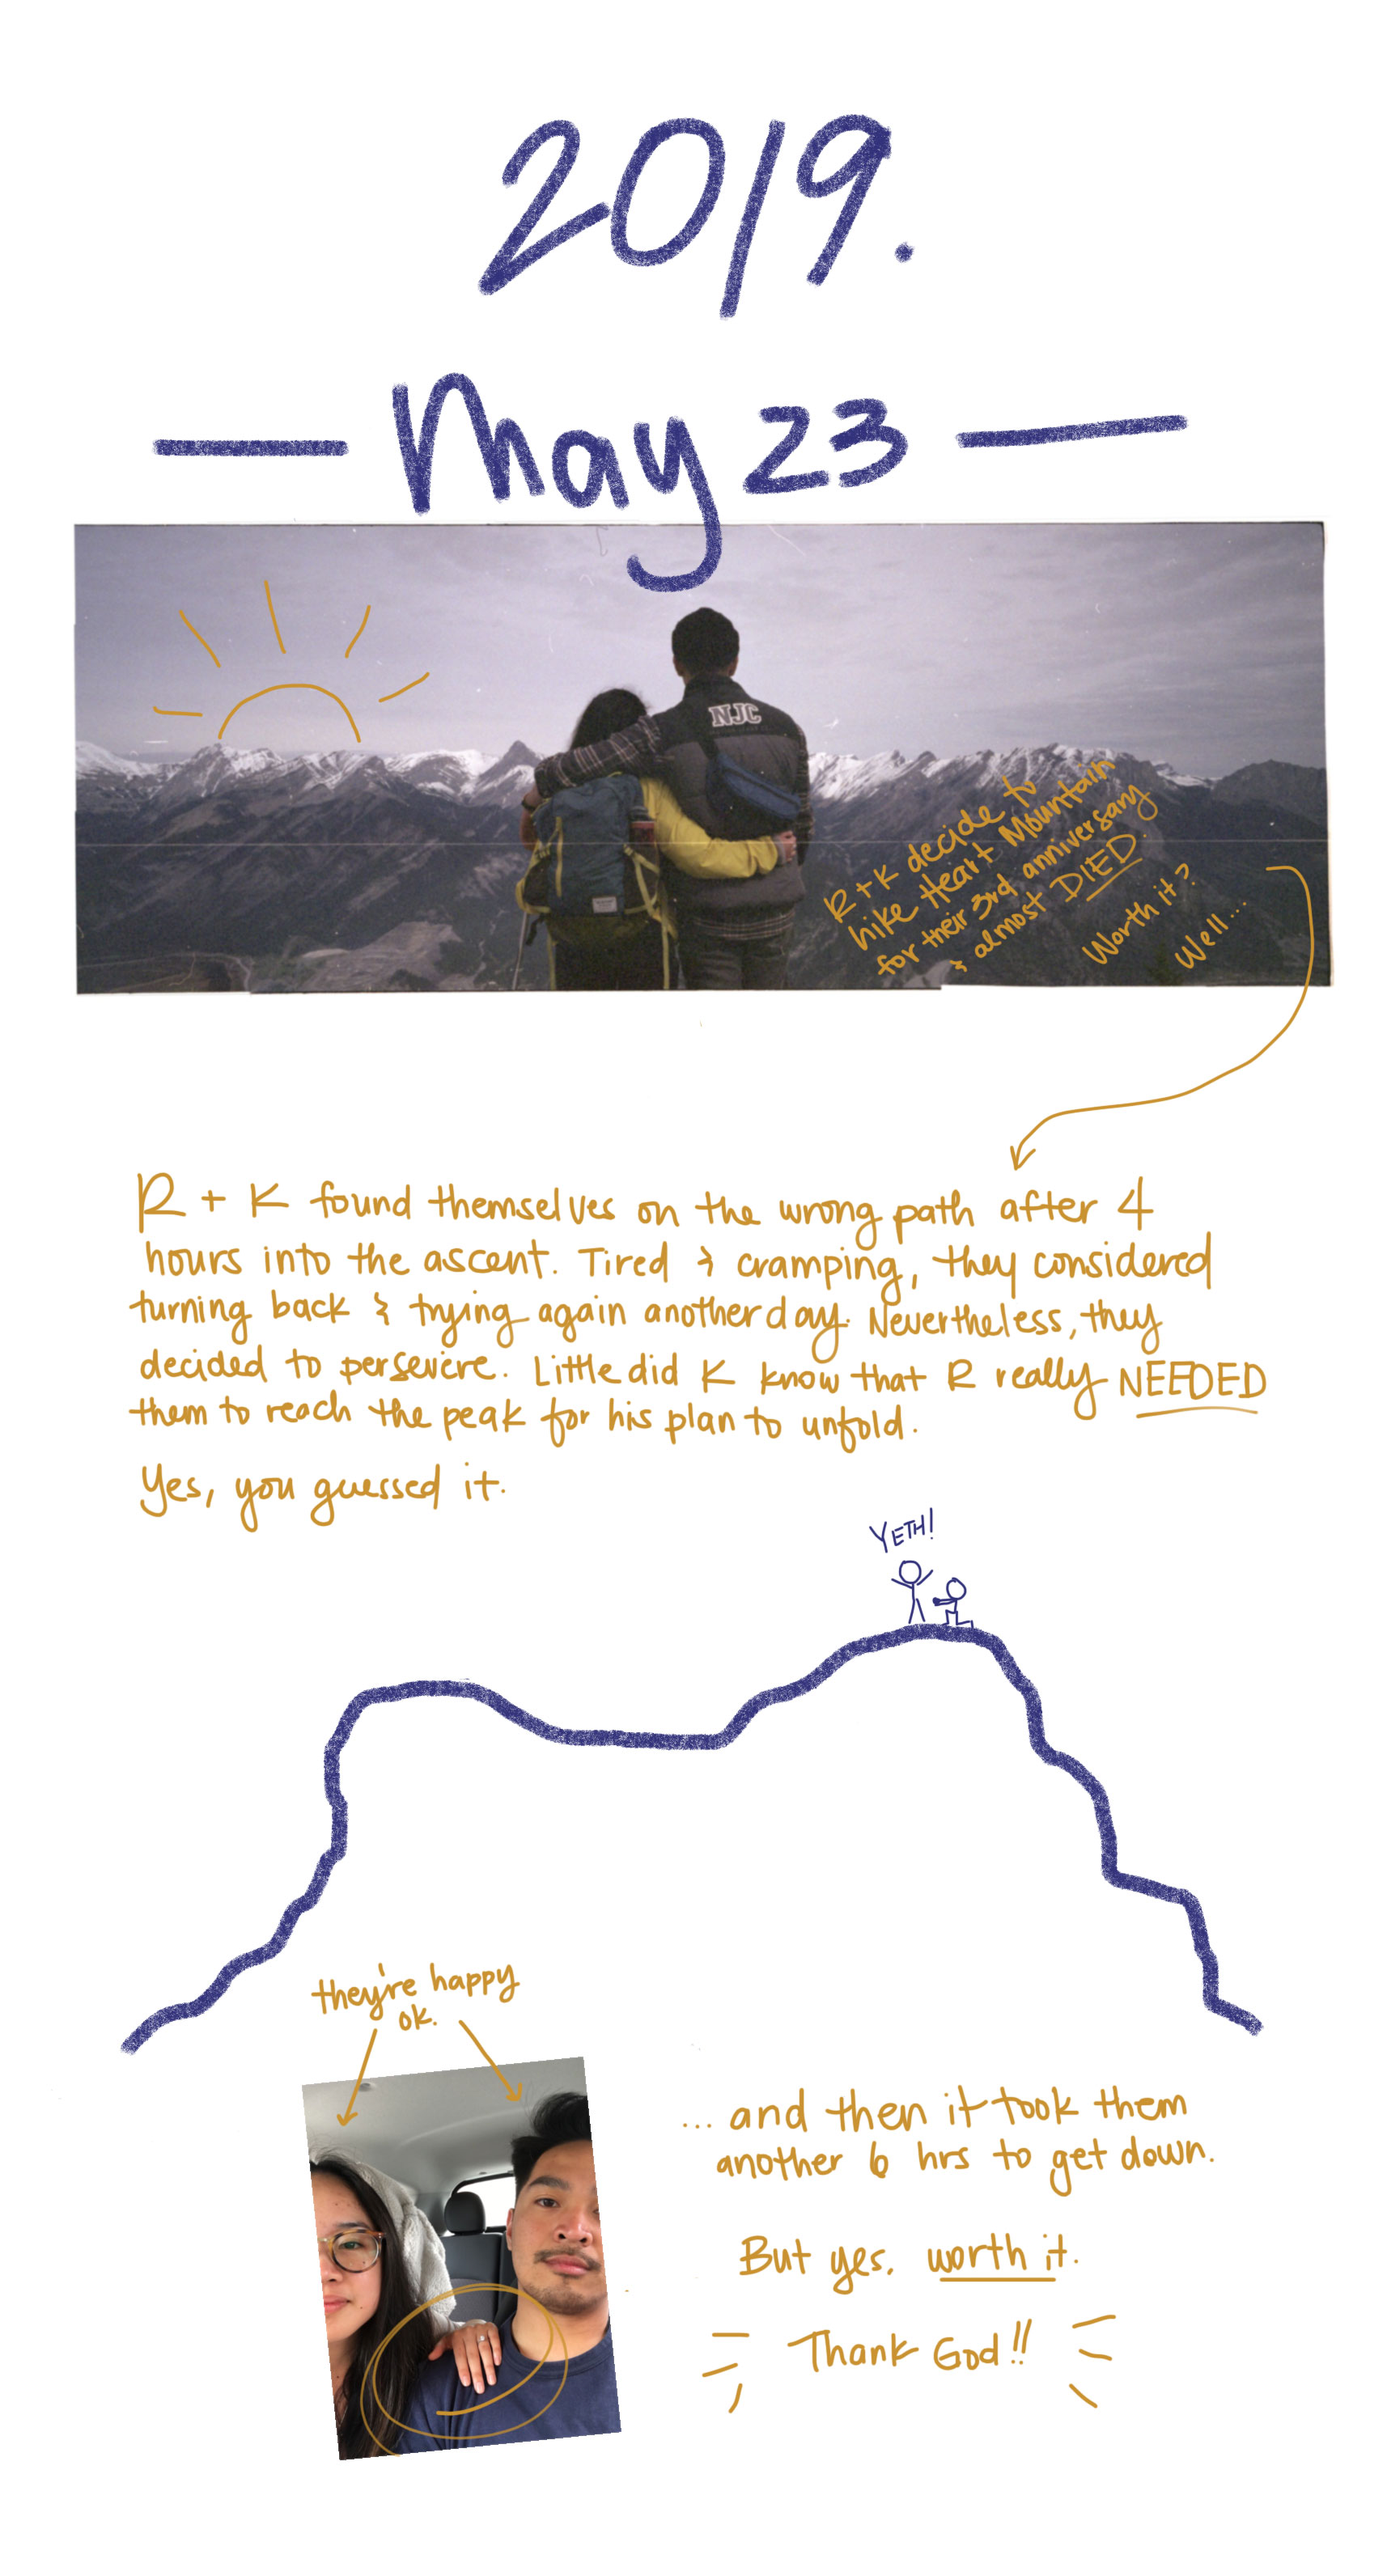 2019.
May 23
NJC
R + K decide to
hike Heart Mountain
for their 3rd anniversary
& almost DIED.
Worth it?
Well...
R + K found themselves on the wrong path after 4
hours into the ascent. Tired & cramping, they considered
turning back & trying again another day. Nevertheless, they
decided to persevere. Little did K know that R really NEEDED
them to reach the peak for his plan to unfold.
Yes, you guessed it.
YETH!
they're happy
ok.
... and then it took them
another 6 hrs to get down.
But yes, worth it.
Thank God!!